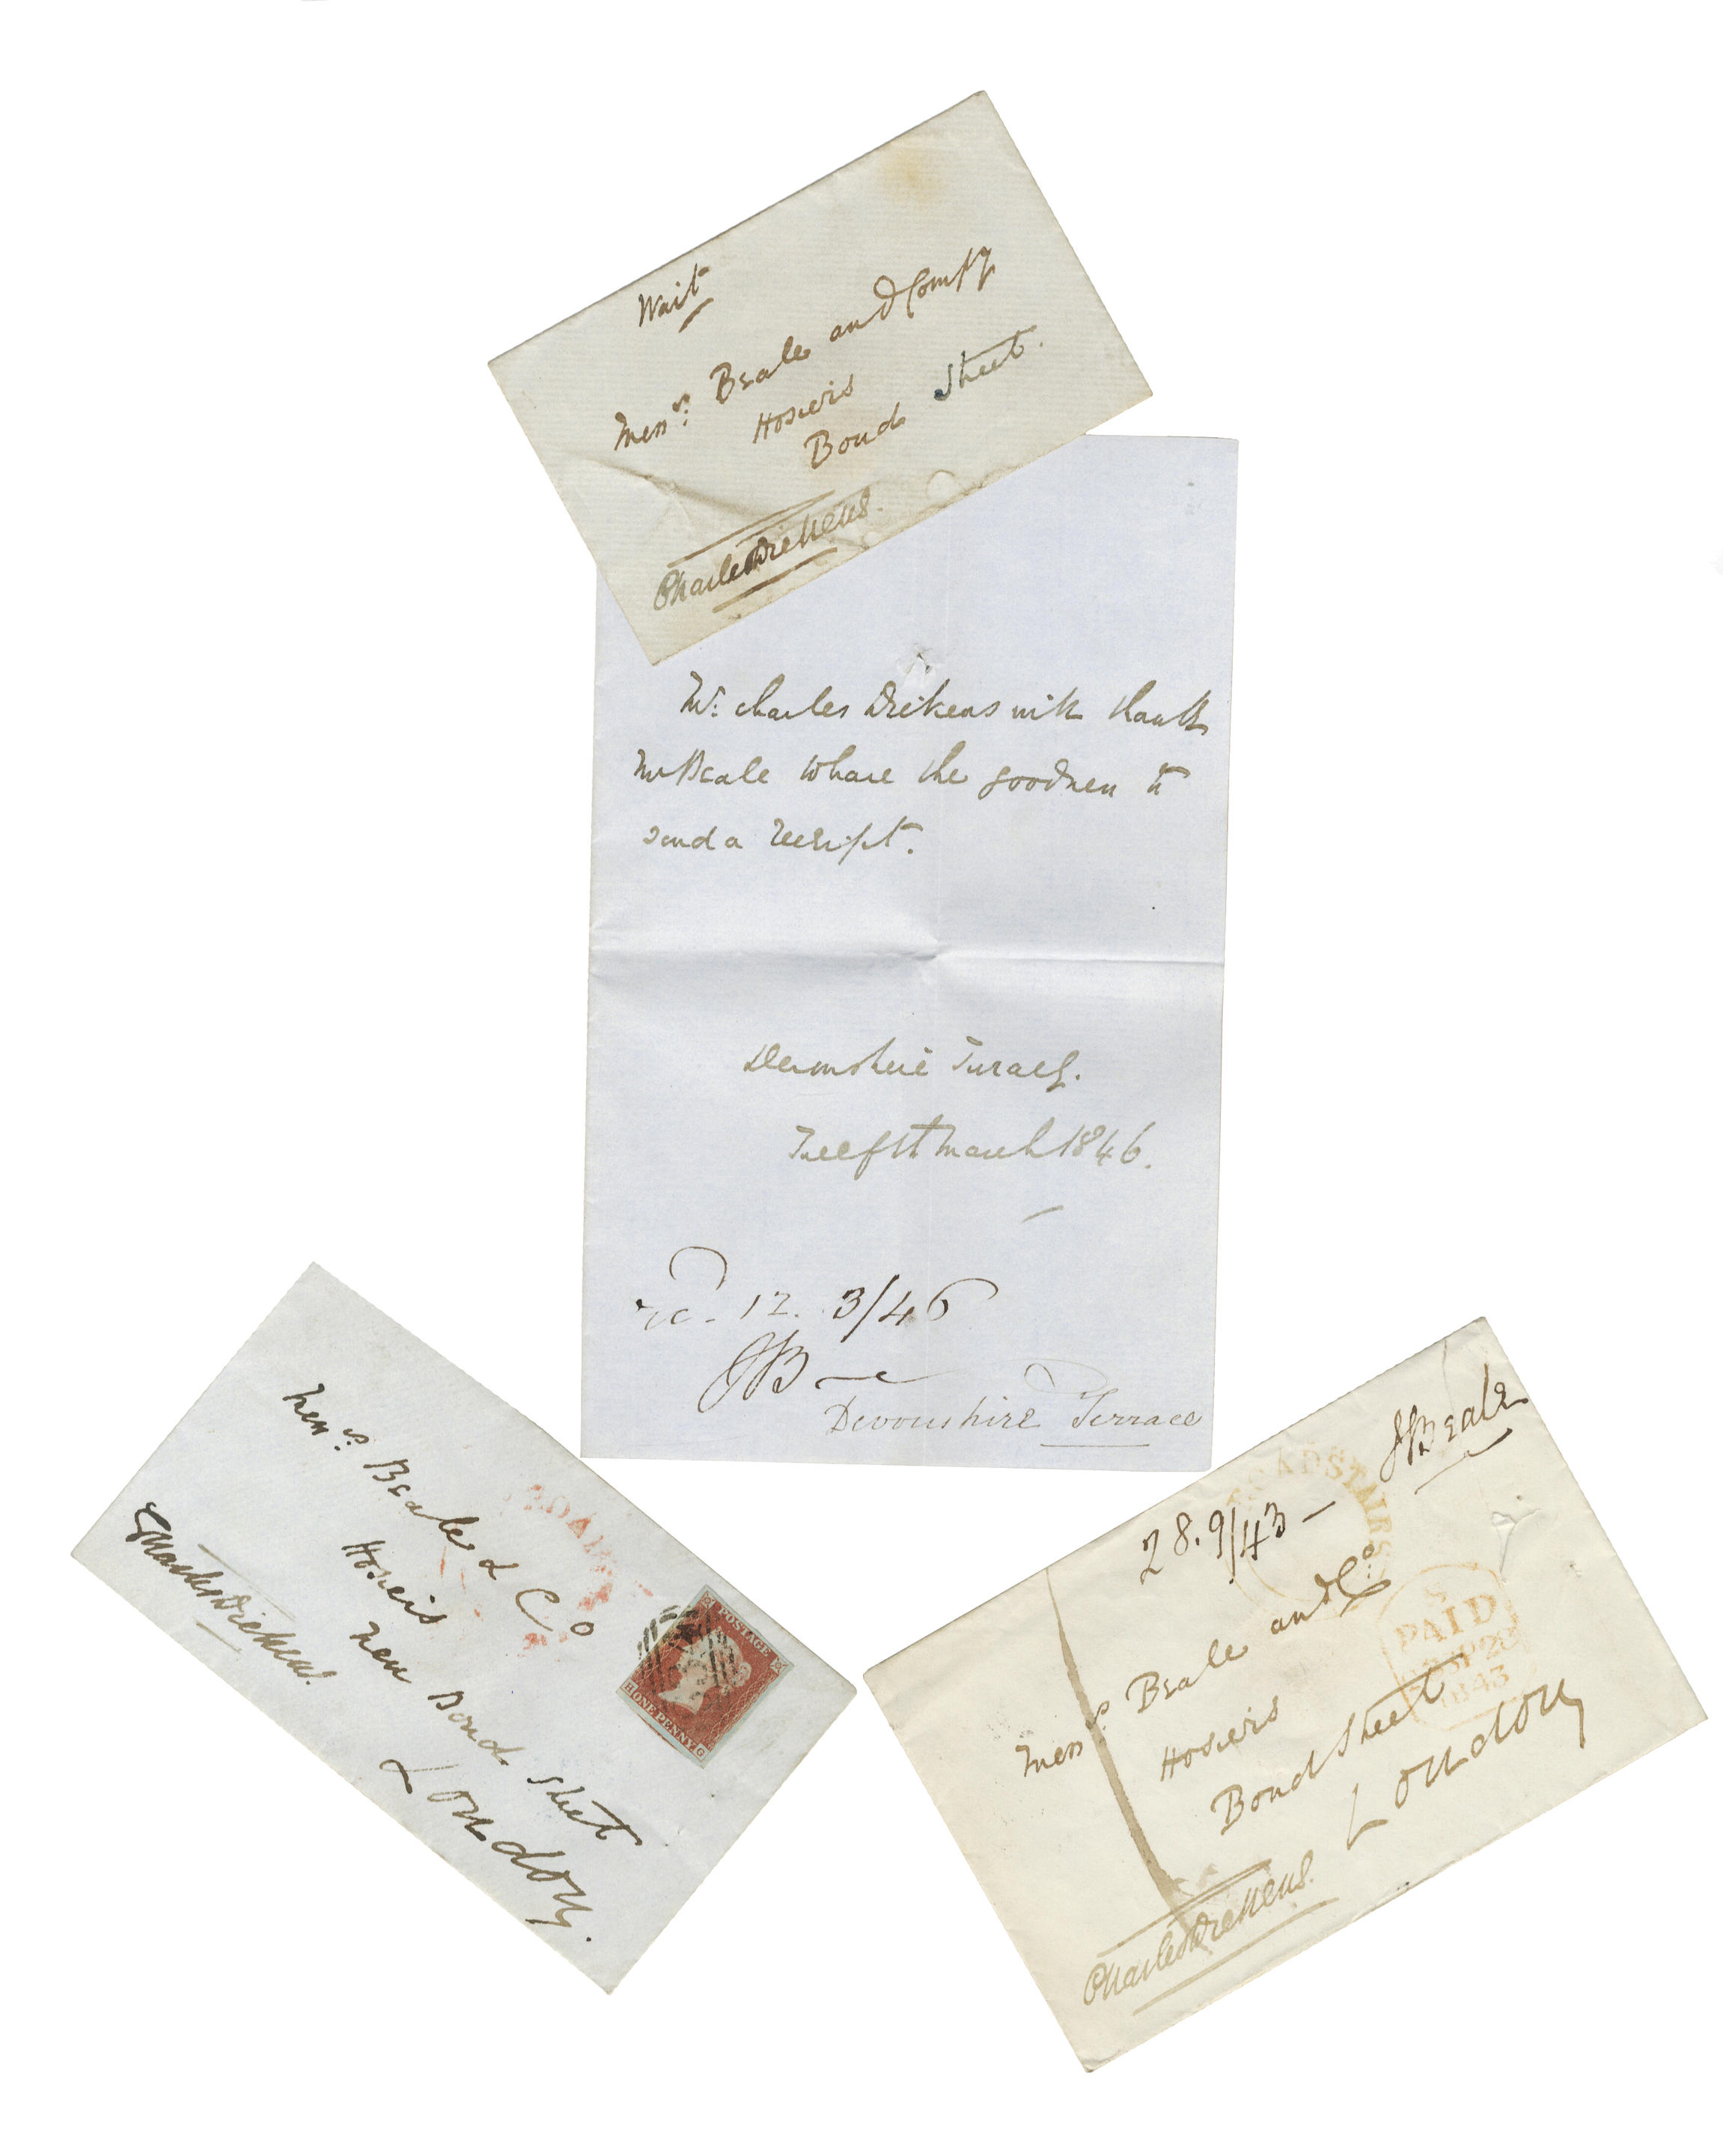 Wait
Messrs. Beale and Compy
Hosiers
Bond Street.
Charles Dickens.
Mr. Charles Dickens will thank
Mr Beale to have the goodness to
send a receipt.
Devonshire Terrace.
Twelfth March 1846.
12. 3/46
JB
Devonshire Terrace
Messrs. Beale & Co
Hosiers
New Bond Street
London.
Charles Dickens.
POSTAGE
ONE PENNY
H G
JBeale
28.9/43
BROADSTAIRS
Messrs. Beale and Co.
Hosiers
Bond Street
London
PAID
SP 28
1843
Charles Dickens.